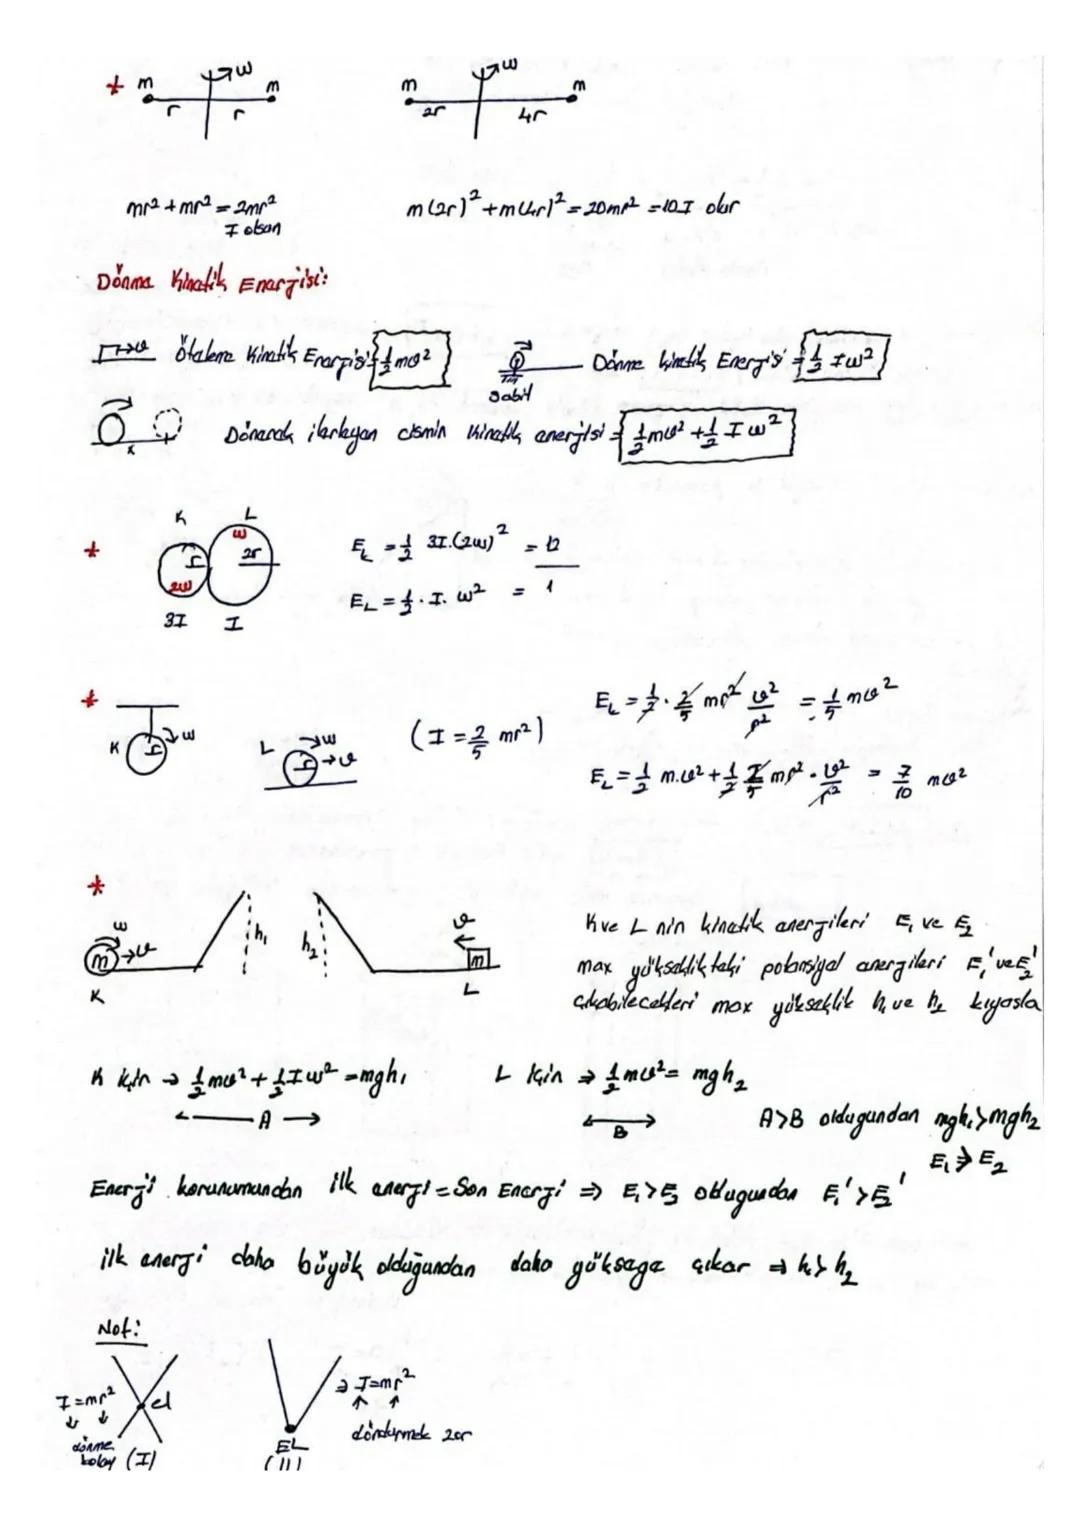 * m r ω r m m 2r ω 4r m
mr² + mr² = 2mr² m(2r)² + m(4r)² = 20mr² = 10.I olur
I olsun
Dönme Kinetik Enerjisi:
→υ Öteleme Kinetik Enerjisi = ½mυ² sabit Dönme Kinetik Enerjisi = ½Iω²
x Dönerek ilerleyen cismin kinetik enerjisi = ½mυ² + ½Iω²
* K r 2ω 3I L ω 2r I
E_K = ½ 3I.(2ω)² = 12
E_L = ½ . I. ω² = 1
* K r ω L r ω υ (I = 2/5 mr²)
E_k = ½ . 2/5 mr² υ²/r² = 1/5 mυ²
E_L = ½ m.υ² + ½ 2/5 mr² . υ²/r² = 7/10 mυ²
* ω m υ K h₁ h₂ υ m L
K ve L nin kinetik enerjileri E₁ ve E₂
max yükseklikteki potansiyel enerjileri E₁' ve E₂'
çıkabilecekleri max yükseklik h₁ ve h₂ kıyasla
K için → ½mυ² + ½Iω² = mgh₁ L için ⇒ ½mυ² = mgh₂
A B A>B olduğundan mgh₁>mgh₂
E₁ > E₂
Enerji korunumundan ilk enerji = Son Enerji ⇒ E₁>E₂ olduğundan E₁' > E₂'
ilk enerji daha büyük olduğundan daha yükseğe çıkar ⇒ h₁> h₂
Not:
I = mr² ↓ ↓ dönme kolay el (I)
EL (II) ⇒ I=mr² ↑ ↑ döndürmek zor